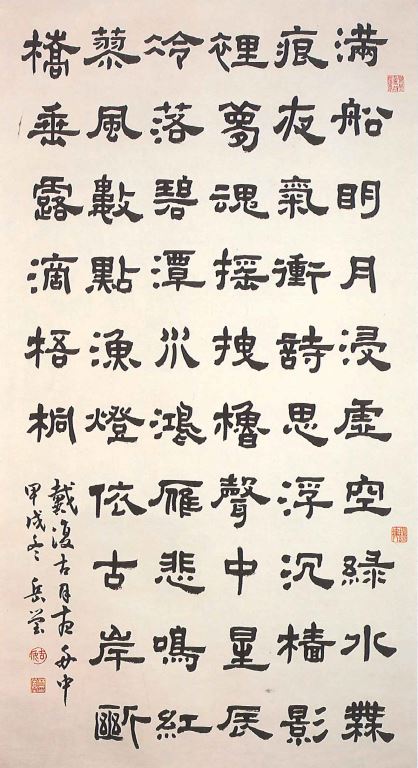 滿船明月浸虛空綠水無
痕夜氣衝詩思浮沉檣影
裡夢魂搖拽櫓聲中星辰
冷落碧潭水鴻雁悲鳴紅
蓼風數點漁燈依古岸斷
橋垂露滴梧桐
戴復古月夜舟中
甲戌冬岳瑩